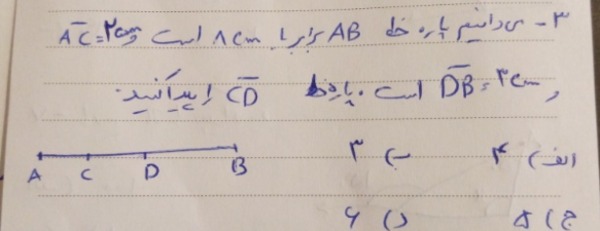 ۳- می‌دانیم پاره خط AB برابر با ۸cm است و AC=۲cm
و DB=۳cm است. پاره‌خط CD را پیدا کنید.
A C D B
الف) ۴ ب) ۳
ج) ۵ د) ۶